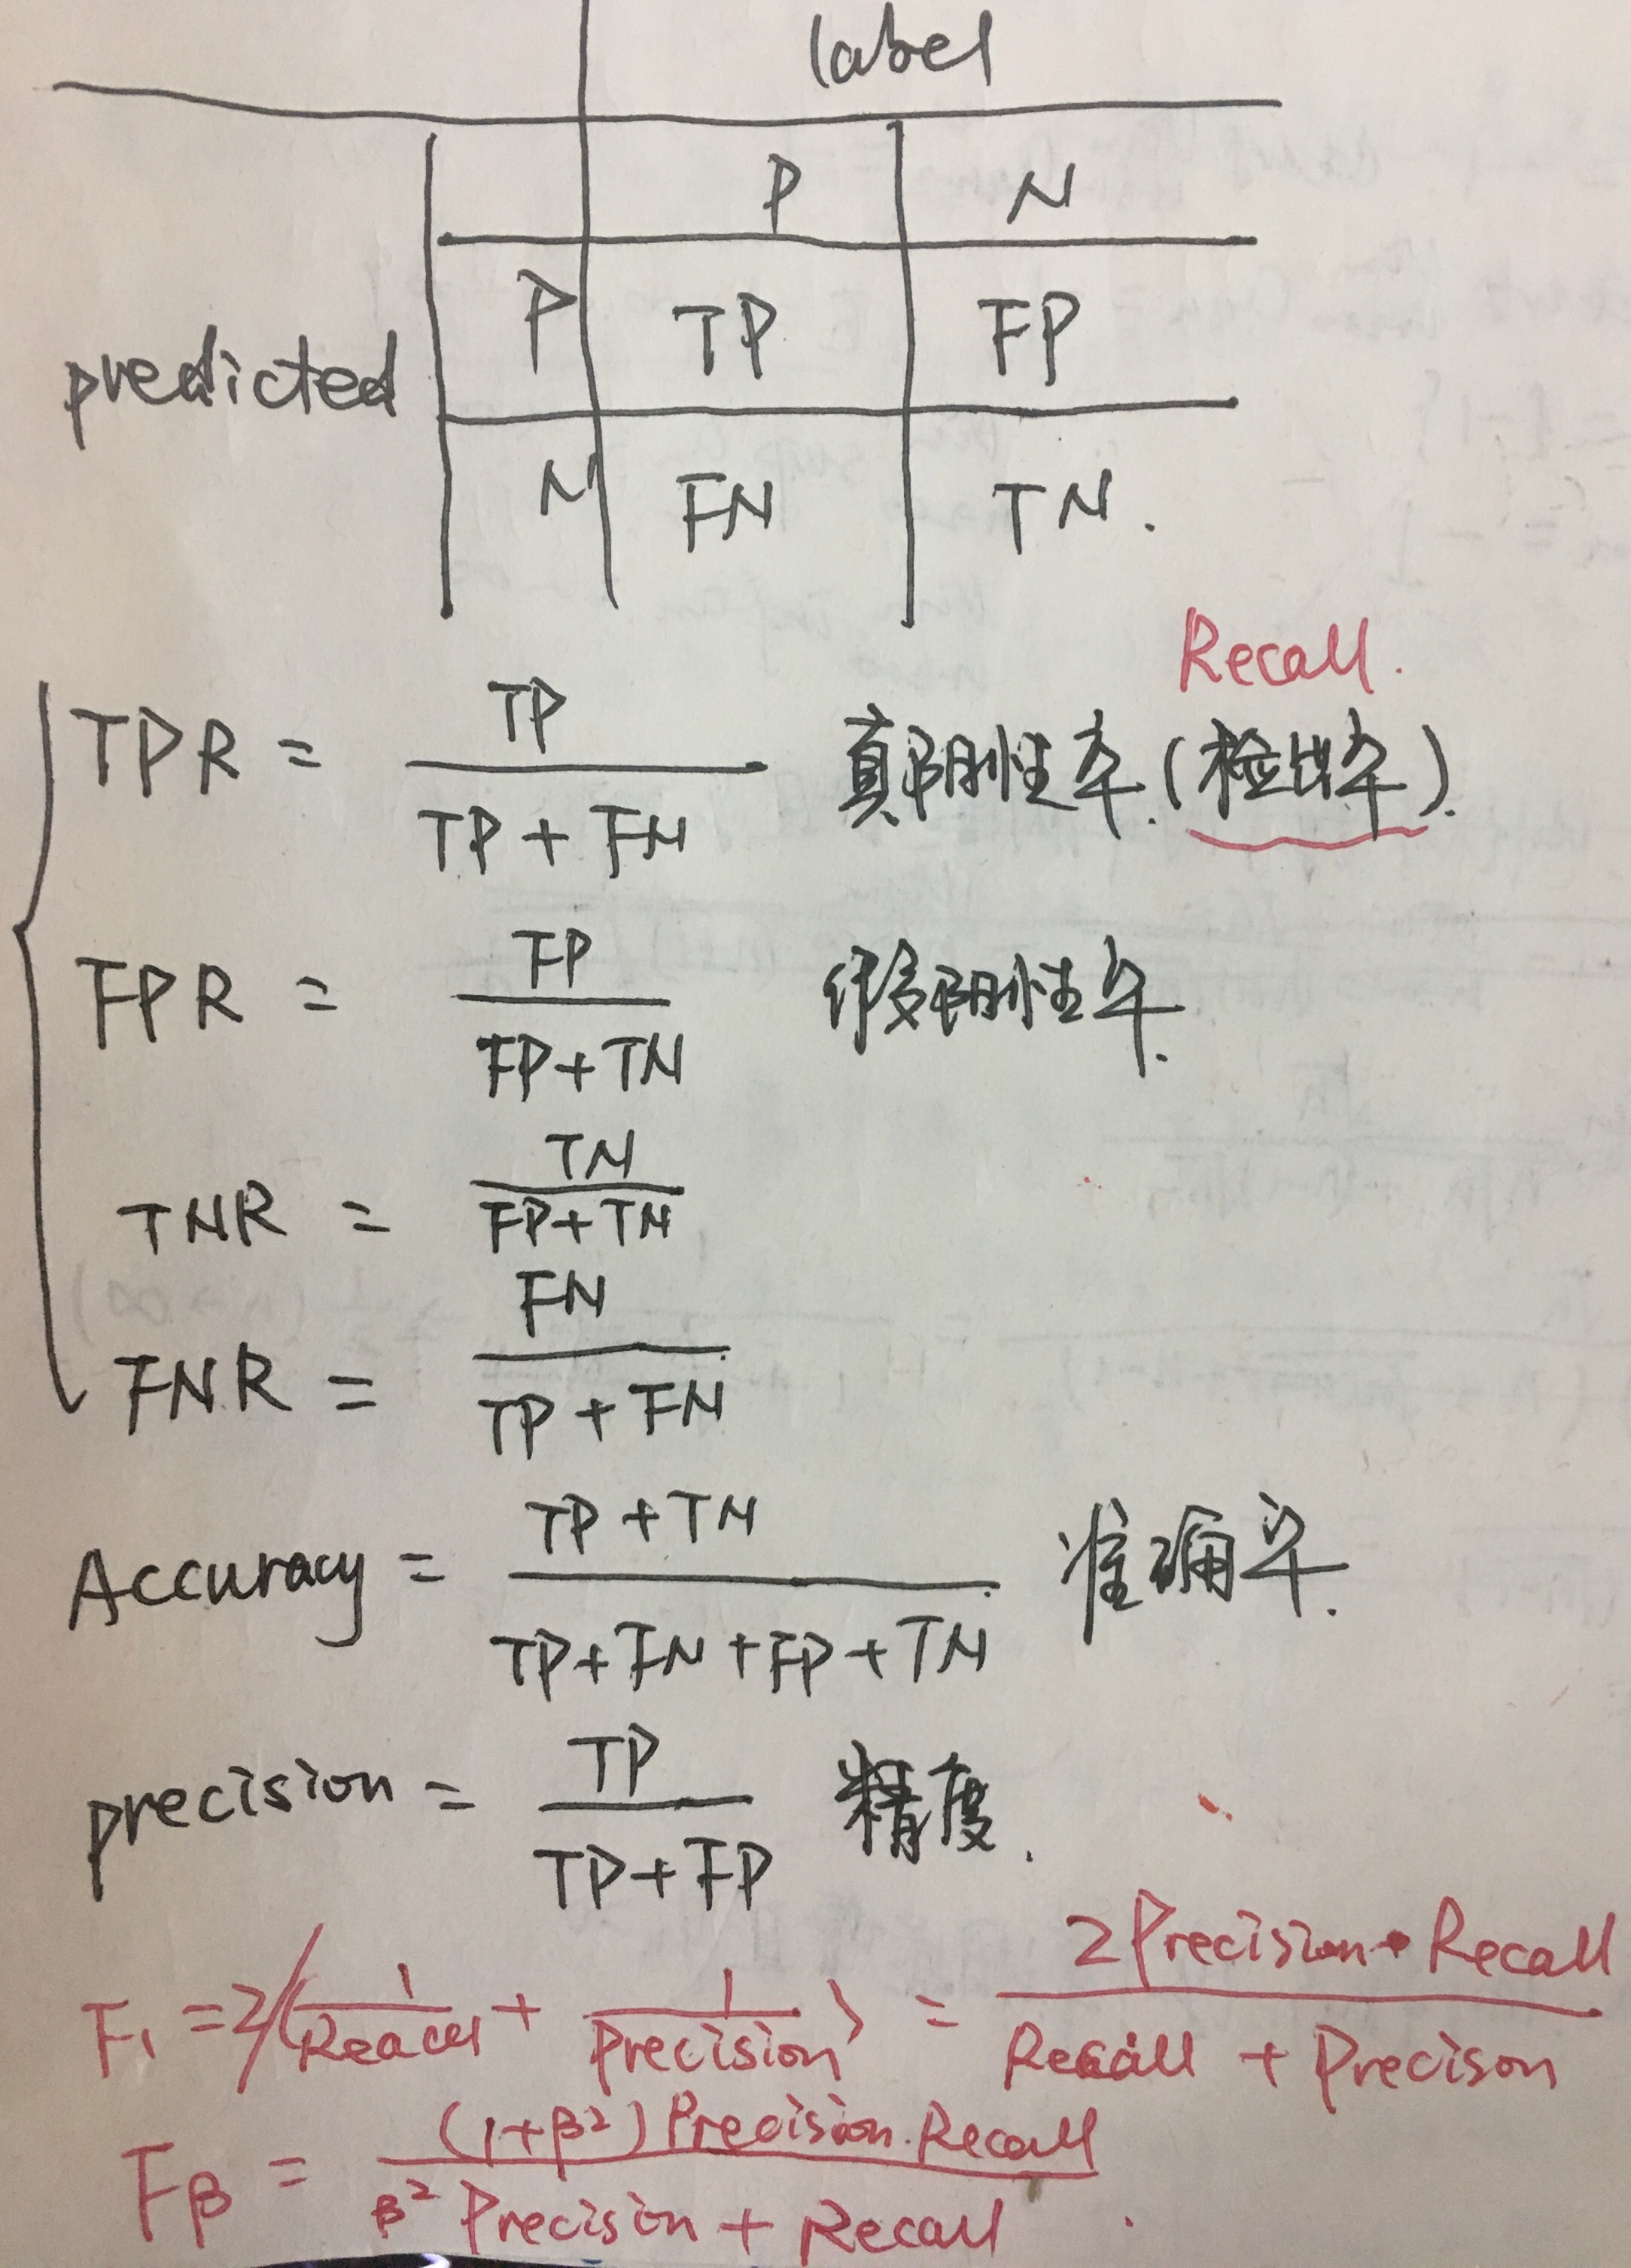 label
P N
P TP FP
predicted
N FN TN.
Recall.
TPR = TP / (TP + FN) 真阴性率.(检出率).
FPR = FP / (FP+TN) 假阴性率.
TNR = TN / (FP+TN)
FNR = FN / (TP + FN)
Accuracy = (TP + TN) / (TP+FN+FP+TN) 准确率.
precision = TP / (TP+FP) 精度.
F₁ = 2/(1/Reacll + 1/Precision) = 2Precision·Recall / (Recall + Precison)
Fβ = (1+β²)Precision·Recall / (β² Precision + Recall).